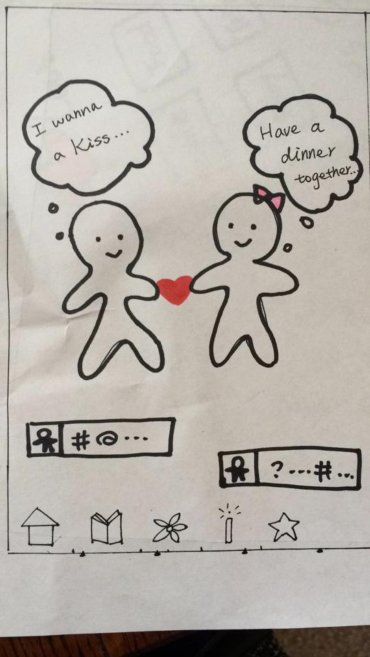 I wanna
a kiss...
Have a
dinner
together...
#@...
?...#...